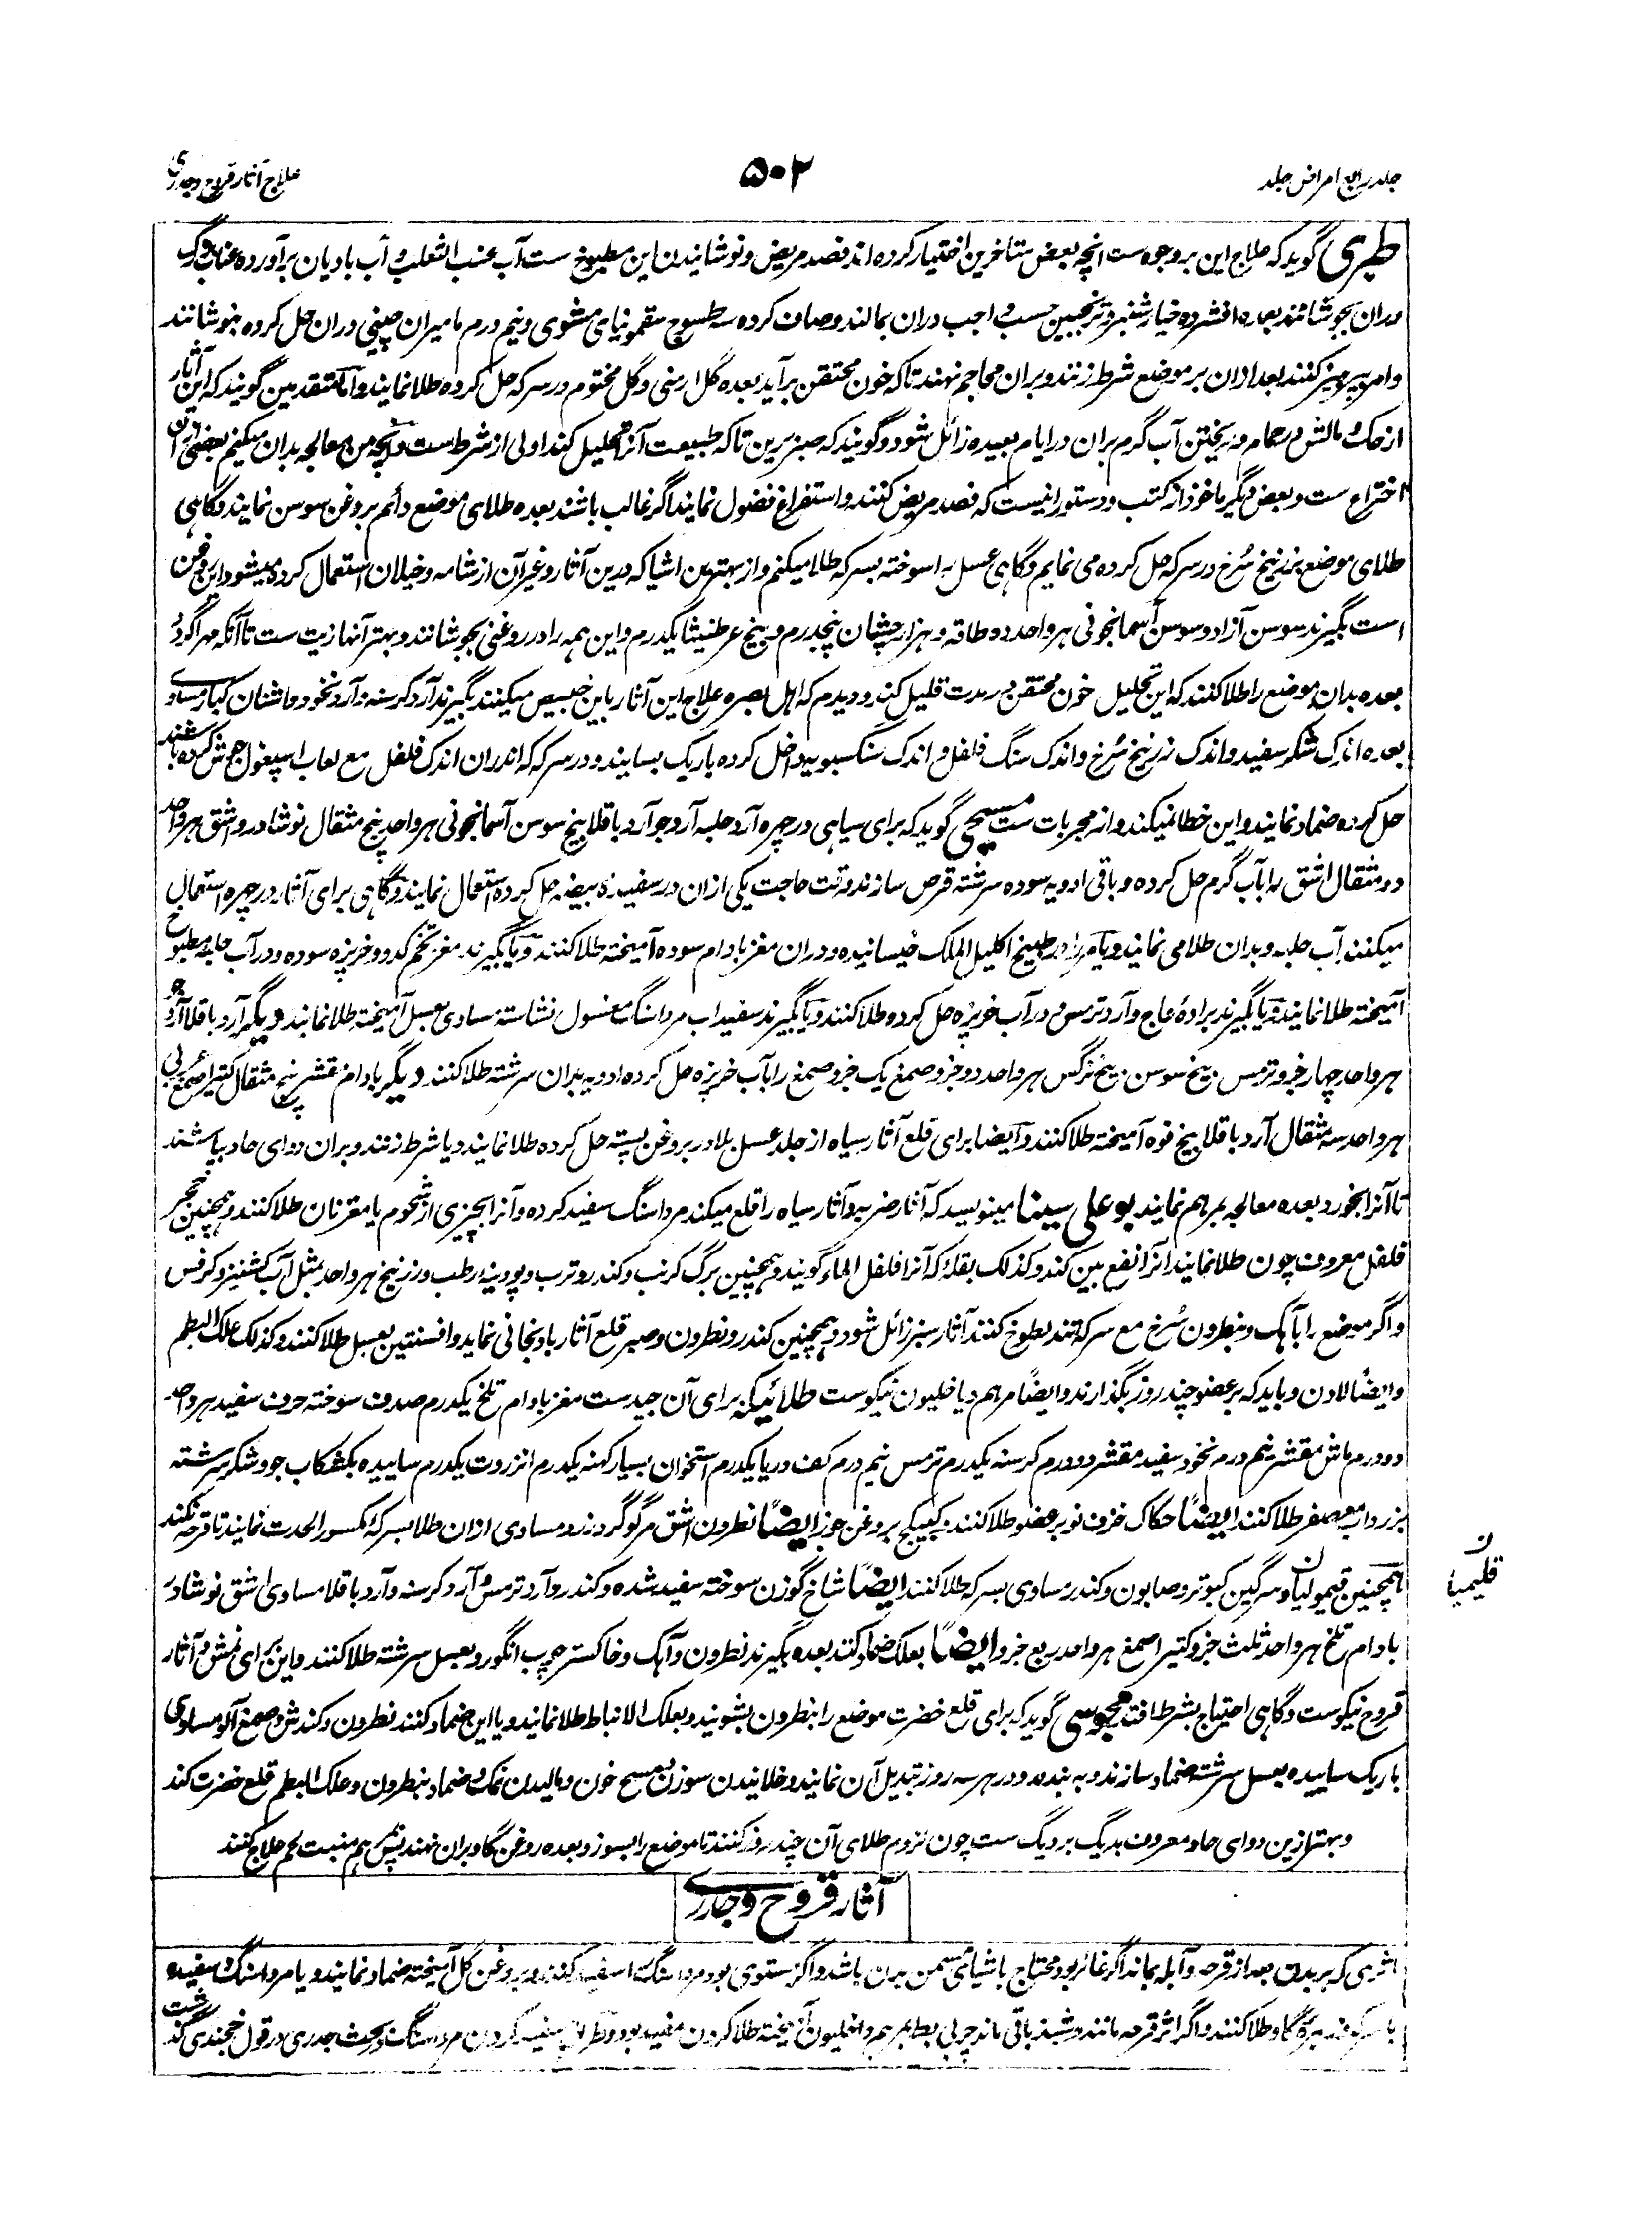 جلد رابع امراض جلد
۵۰۲
علاج آثار قروح وجدری
طبری گوید که علاج این بر وجوه ست انچه بعض متاخرین اختیار کرده اند فصد مریض و نوشانیدن این مطبوخ ست آب عنب الثعلب و آب بادیان برآورده عناب
دران بجوشانند بعده افشرده خیار شنبر و ترنجبین حسب واجب دران بمالند و صاف کرده سه طسوج سقمونیای مشوی و نیم درم مامیران چینی دران حل کرده بنوشانند
و امر بپرهیز کنند بعد ازان بر موضع شرط زنند و بران محاجم نهند تا که خون محتقن برآید بعده گل ارمنی و گل مختوم در سرکه حل کرده طلا نمایند و اما متقدمین گویند که این آثار
از حک و مالش در حمام و بریختن آب گرم بران در ایام بعیده زائل شود و گویند که صبر برین تا که طبیعت آنرا تحلیل کند اولی از شرط ست و انچه من معالجه بدان میکنم بعضی ازان
اختراع ست و بعض دیگر ماخوذ از کتب و دستور اینست که فصد مریض کنند و استفراغ فضول نمایند اگر غالب باشند بعده طلای موضع دائم بروغن سوسن نمایند و گاهی
طلای موضع بزرنیخ سرخ در سرکه حل کرده می نمایم و گاهی عسل را سوخته بسرکه طلا میکنم و از بهترین اشیا که درین آثار و غیر آن از شامه و خیلان استعمال کرده میشود این روغن
است بگیرند سوسن آزاد و سوسن آسمانجونی هر واحد ده طاقه و هزار جشان پنجدرم و بیخ عرطنیثا یکدرم و این همه را در روغنی بجوشانند و بهتر آنها زیت ست تا آنکه مهرا گردد
بعده بدان موضع را طلا کنند که این تحلیل خون محتقن در مدت قلیل کند و دیدم که اهل بصره علاج این آثار باین خبیص میکنند بگیرند آرد کرسنه و آرد نخود و ماشان کبار مساوی
بعده اندک شکر سفید و اندک زرنیخ سرخ و اندک سنگ فلفل و اندک سنگسبویه داخل کرده باریک بسایند و در سرکه که اندران اندک فلفل مع لعاب اسپغول جوش کرده باشند
حل کرده ضماد نمایند و این خطا نمیکند و از مجربات ست مسیحی گوید که برای سیاهی در چهره آرد حلبه آرد جو آرد باقلا بیخ سوسن آسمانجونی هر واحد پنج مثقال نوشادر و اشق هر واحد
دو مثقال اشق را بآب گرم حل کرده و باقی ادویه سوده سرشته قرص سازند وقت حاجت یکی ازان در سفیده بیضه حل کرده استعمال نمایند و گاهی برای آثار در چهره استعمال
میکنند آب حلبه و بدان طلا می نمایند و یا در طبیخ اکلیل الملک خیسانیده و دران مغز بادام سوده آمیخته طلا کنند و یا بگیرند مغز تخم کدو و خربزه سوده و در آب حلبه مطبوخ
آمیخته طلا نمایند و یا بگیرند براده عاج و آرد ترمس و در آب خربزه حل کرده طلا کنند و یا بگیرند سفیداب مرداسنگ مغسول نشاسته مساوی بعسل آمیخته طلا نمایند دیگر آرد باقلا آرد جو
هر واحد چهار جزو ترمس بیخ سوسن بیخ نرگس هر واحد دو جزو صمغ یک جزو صمغ را بآب خربزه حل کرده ادویه بدان سرشته طلا کنند دیگر بادام مقشر پنج مثقال کتیرا صمغ عربی
هر واحد سه مثقال آرد باقلا بیخ فوه آمیخته طلا کنند و ایضا برای قلع آثار سیاه از جلد عسل بلادر بروغن پسته حل کرده طلا نمایند و یا شرط زنند و بران دوای حاد بپاشند
تا آنرا بخورد بعده معالجه بمرهم نمایند بو علی سینا مینویسد که آثار ضربه و آثار سیاه را قلع میکند مرداسنگ سفید کرده و آنرا بچیزی از شحوم یا مغز نان طلا کنند و همچنین حجر
فلفل معروف چون طلا نمایند آنرا نفع بین کند و کذلک بقله که آنرا فلفل الماء گویند و همچنین برگ کرنب و کندر و ترب و پودینه رطب و زرنیخ هر واحد بمثل آب کشنیز و کرفس
و اگر موضع را بآهک و بنطرون سرخ مع سرکه تند بطوخ کنند آثار سبز زائل شود و همچنین کندر و نطرون و صبر قلع آثار بادنجانی نماید و افسنتین بعسل طلا کنند و کذلک علک البطم
و ایضا لادن و باید که بر عضو چند روز بگذارند و ایضا مرهم دیاخلیون نیکوست طلائیکه برای آن جیدست مغز بادام تلخ یکدرم صدف سوخته حرف سفید هر واحد
دو درم ماش مقشر نیم درم نخود سفید مقشر دو درم کرسنه یکدرم ترمس نیم درم کف دریا یکدرم استخوان بسیار کهنه یکدرم انزروت یکدرم ساییده بکشکاب جو و شکر سرشته
بزرداب معصفر طلا کنند ایضا حکاک خزف نو بر عضو طلا کنند کبیکج بروغن جوز ایضا نطرون اشق مر گوگرد زرد مساوی ازان طلا بسرکه مکسور الحدت نمایند تا قرحه نکند
همچنین قیمولیا و سرگین کبوتر و صابون و کندر مساوی بسرکه طلا کنند ایضا شاخ گوزن سوخته سفید شده و کندر و آرد ترمس و آرد کرسنه و آرد باقلا مساوی اشق نوشادر
قلیمیا ن
بادام تلخ هر واحد ثلث جزو کتیرا صمغ هر واحد ربع جزو ایضا بعلک ضماد کنند بعده بگیرند نطرون و آهک و خاکستر چوب انگور و بعسل سرشته طلا کنند و این برای نمش و آثار
قروح نیکوست و گاهی احتیاج بشرط افتد مجوسی گوید که برای قلع خضرت موضع را بنطرون بشویند و بعلک الانباط طلا نمایند و یا این ضماد کنند نطرون و کندش و صمغ آلو مساوی
باریک ساییده بعسل سرشته ضماد سازند و به بندند و در هر سه روز تبدیل آن نمایند و خلانیدن سوزن و مسح خون و مالیدن نمک و ضماد بنطرون و علک البطم قلع خضرت کند
و بهتر ازین دوای حاد معروف بدیگ بردیگ ست چون لزوم طلای آن چند روز کنند تا موضع را بسوزد و بعده روغن گاو بران نهند پس بمرهم منبت لحم علاج کنند
آثار قروح و جدری
اثری که بر بدن بعد از قرحه و آبله بماند اگر غائر بود محتاج باشیای مسمن بدن باشد و اگر مستوی بود مرداسنگ را سفید کنند و بروغن گل آمیخته ضماد نمایند و یا مرداسنگ سفید
طلا کنند و اگر اثر قرحه باقی ماند چربی بط بمرهم داخلیون آمیخته طلا کردن مفید بود و طریق سفید کردن مرداسنگ در بحث جدری در قول خجندی گذشت